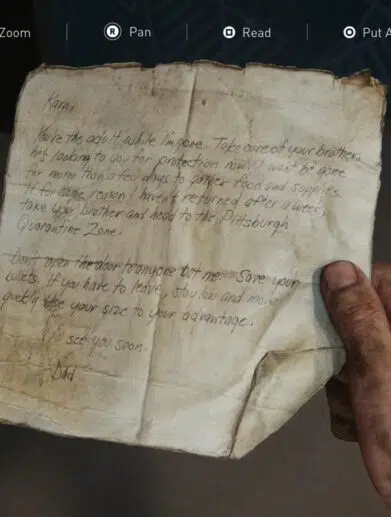 Zoom
R Pan
Read
Put A
You're the adult while I'm gone. Take care of your brother,
he's looking to you for protection now. I won't be gone
for more than a few days to gather food and supplies.
If for some reason I haven't returned after a week,
take your brother and head to the Pittsburgh
Quarantine Zone.
Don't open the door to anyone but me. Save your
bullets. If you have to leave, stay low and move
quickly. Use your size to your advantage.
I'll see you soon.
Dad